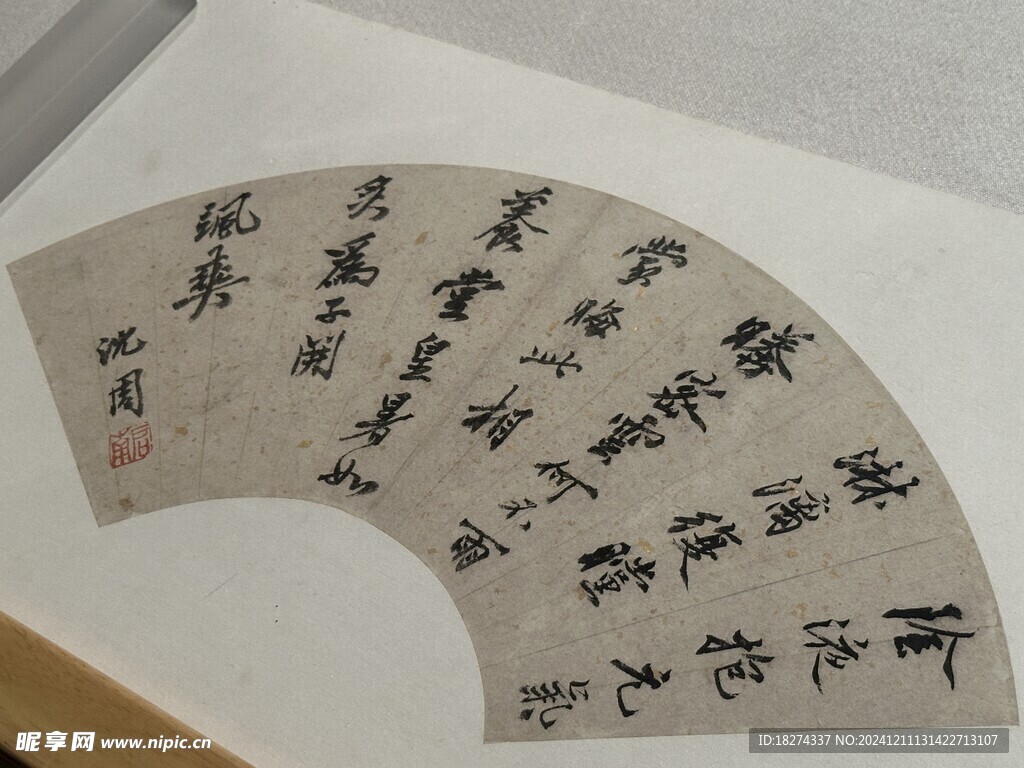 陰液抱元氣
淋漓復瞳
密雲何不雨
當晦非相
養堂皇暑如
炙為子開
颯爽
沈周
啟南
昵享网 www.nipic.cn
ID:18274337 NO:20241211131422713107